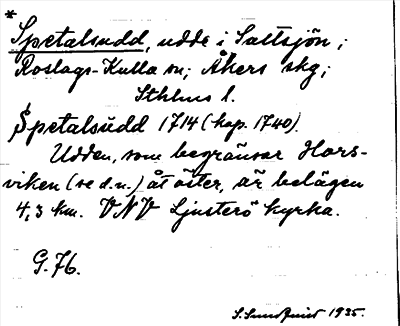 * Spetalsudd, udde i Saltsjön;
Roslags-Kulla sn; Åkers skg;
Sthlms l.
Spetalsudd 1714 (kop. 1740).
Udden, som begränsar Hors-
viken (se d.n.) åt öster, är belägen
4,3 km. VNV Ljusterö kyrka.
G.76.
S. Sundquist 1935.